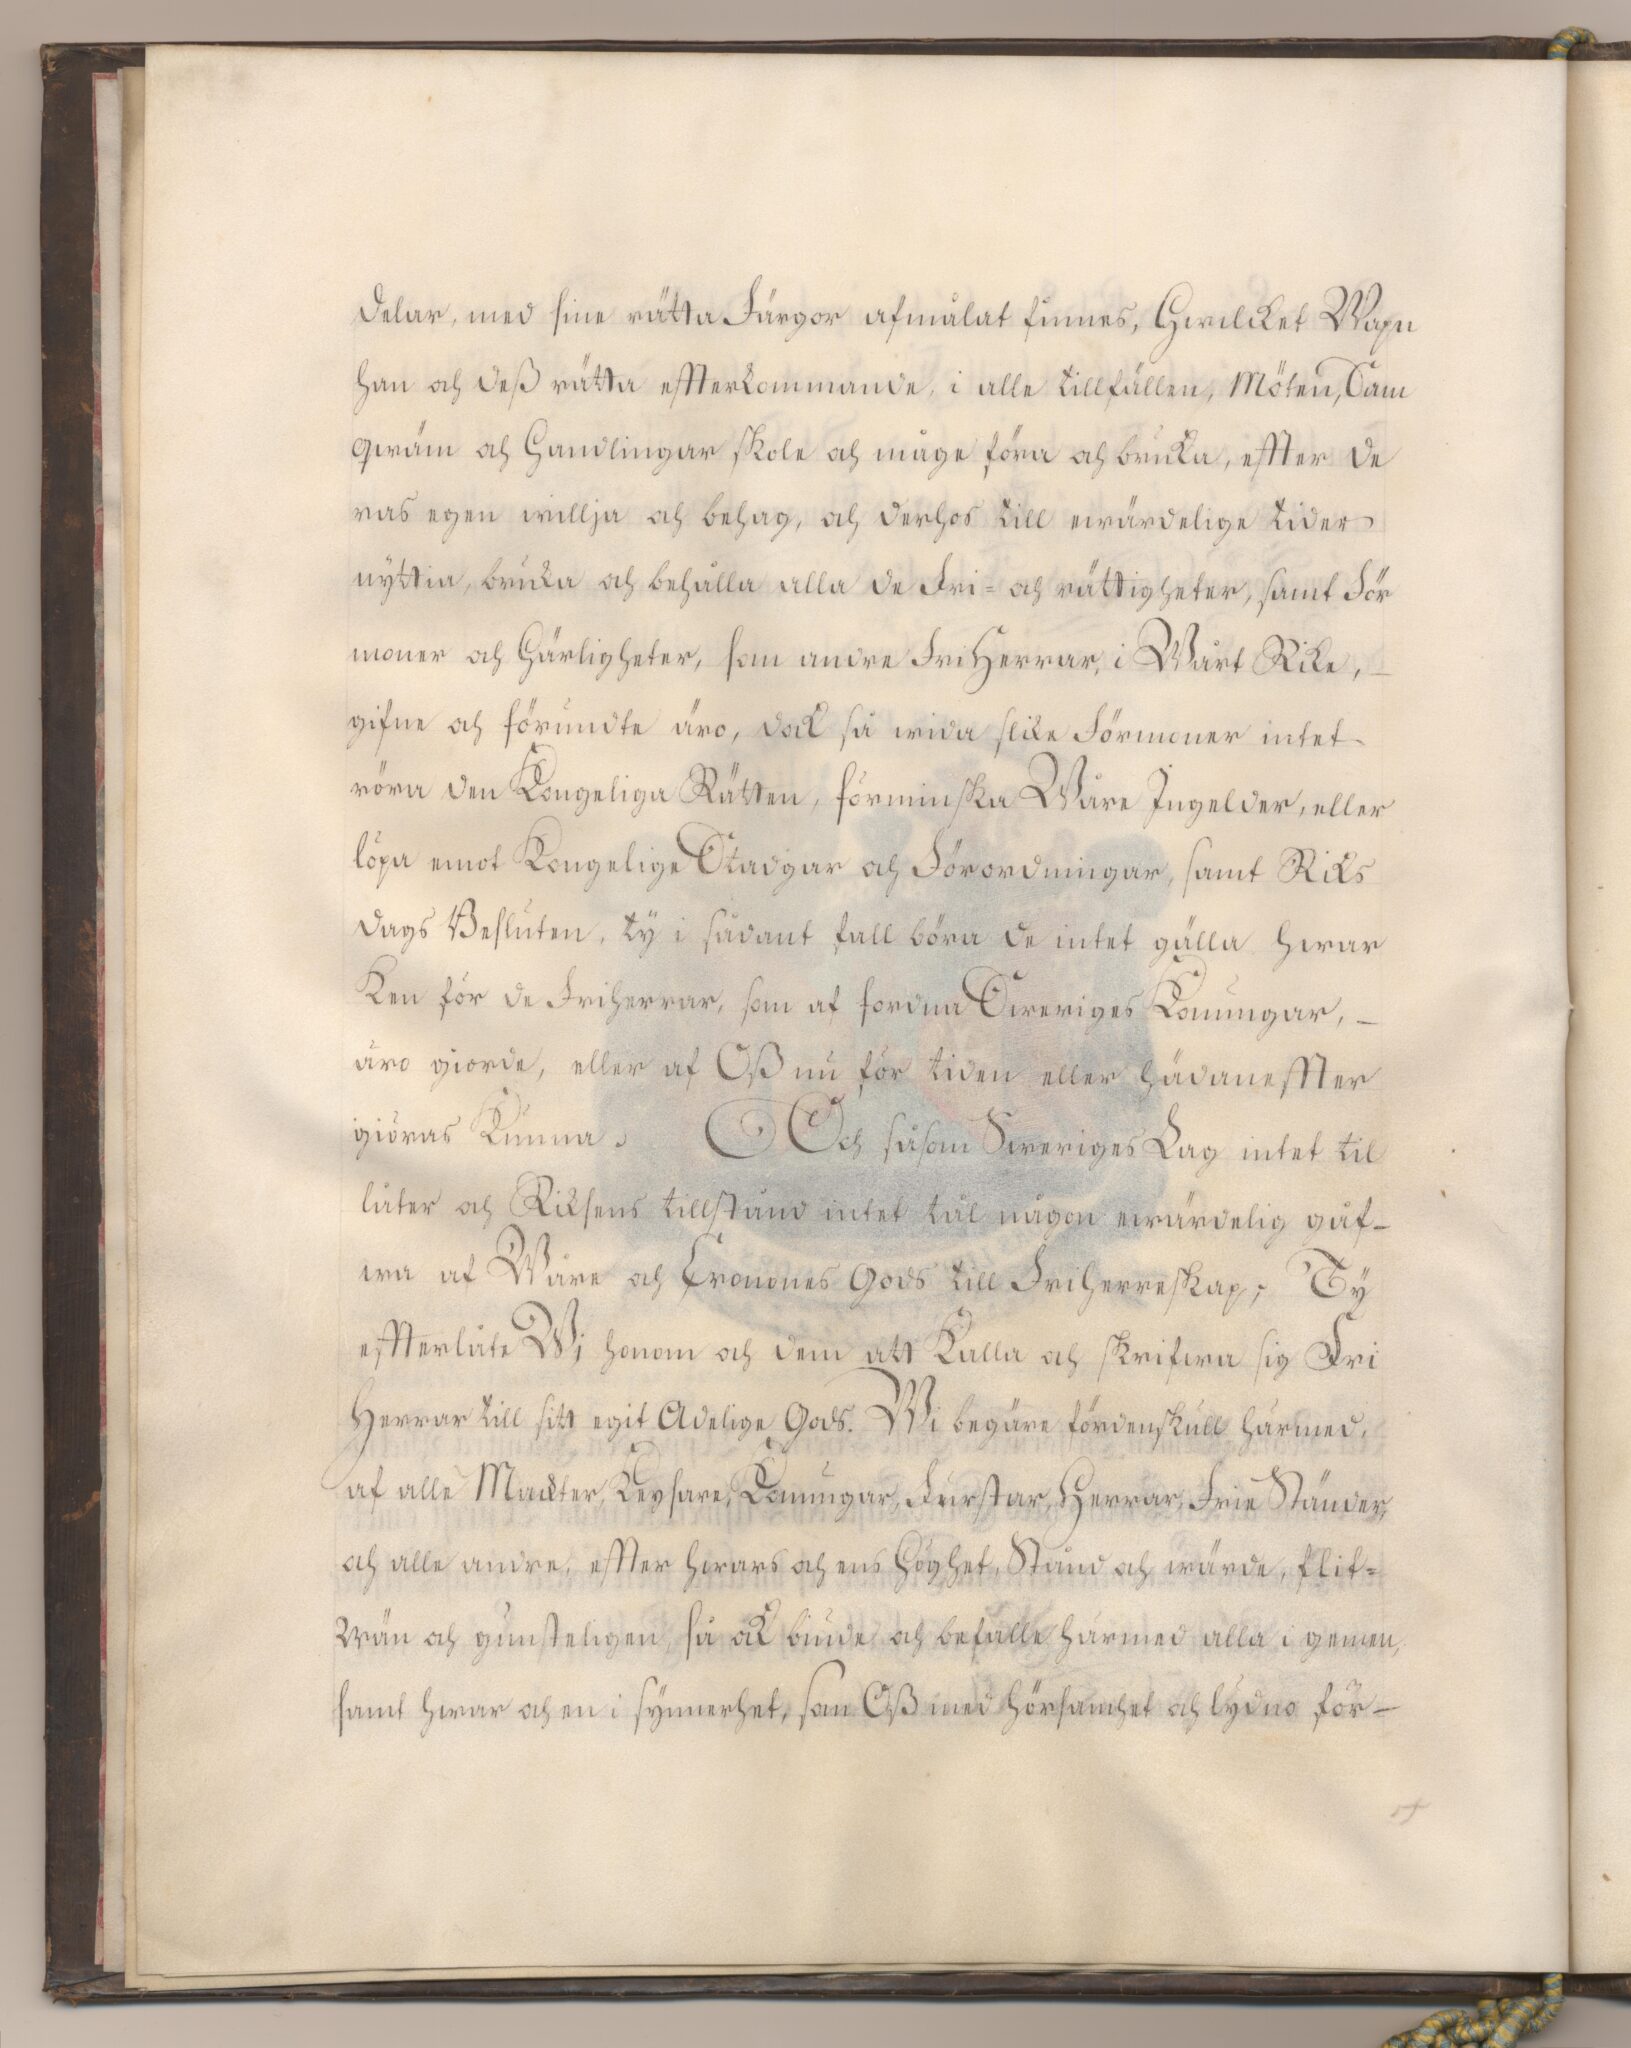 delar, med sine rätta Färgor afmålat finnes, Hwilcket Wapn
han och deß rätta effterkommande, i alle tillfällen, Möten, Sam
qwäm och Handlingar skole och måge föra och bruka, effter De
ras egen willja och behag, och derhos till ewärdelige tider
nyttia, bruka och behålla alla de Fri= och rättigheter, samt För
moner och Härligheter, som andre FriHerrar, i Wårt Rike,
gifne och förundte äro, dock så wida slike Förmoner intet
röra den Kongeliga Rätten, förminska Wåre Ingelder, eller
löpa emot Kongelige Stadgar och Förordningar, samt Riks
dags Besluten, ty i sådant fall böra de intet gälla hwar
ken för de Friherrar, som af fordna Sweriges Konungar,
äro giorde, eller af Oß nu för tiden eller hädaneffter
giöras kunna. Och såsom Sweriges Lag intet til
låter och Riksens tillstånd intet tål någon ewärdelig gåf-
wa af Wåre och Cronones Gods till Friherreskap; Ty
effterlåte Wi honom och dem att kalla och skrifwa sig Fri
Herrar till sitt egit Adelige Gods. Wi begäre fördenskull härmed,
af alle Mackter, Keysare, Konungar, Furstar, Herrar, Frie Ständer,
och alle andre, effter hwars och ens Höghet, Stånd och wärde, flit=
wän och gunsteligen, så ock biude och befalle härmed alla i gemen,
samt hwar och en i synnerhet, som Oß med hörsamhet och lydno för-